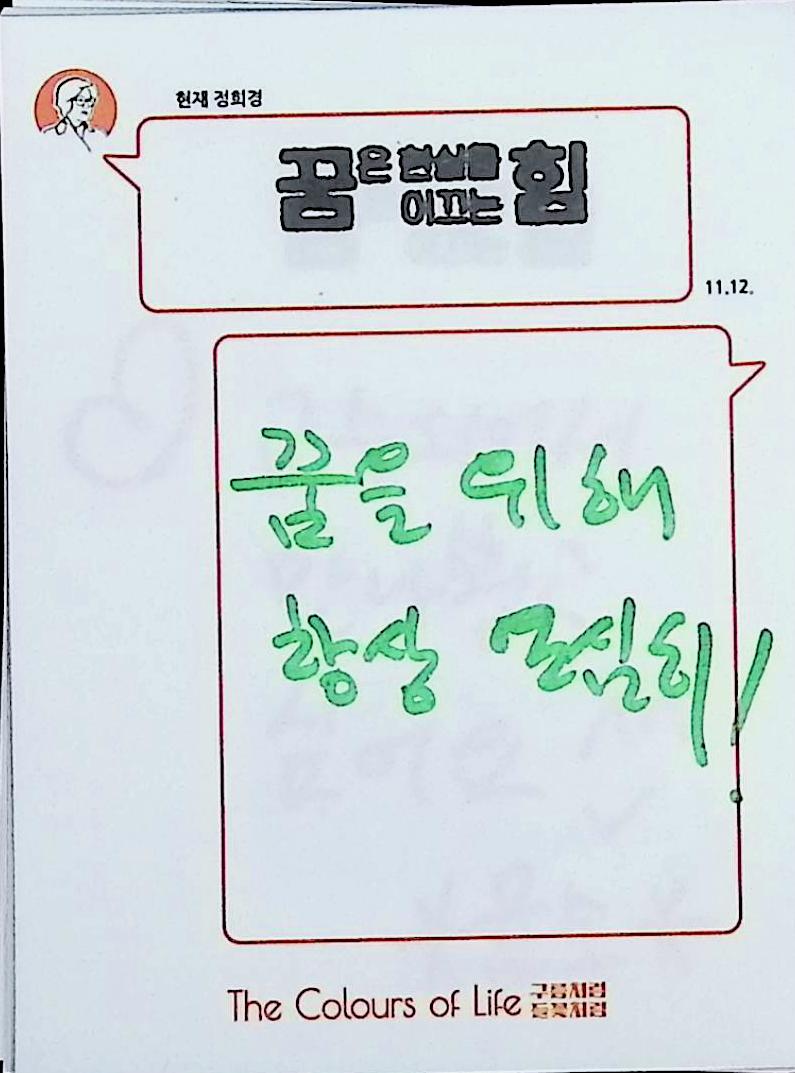 현재 정희경
꿈은 현실을
이끄는 힘
11.12.
꿈을 위해
항상 열심히!
The Colours of Life 구름처럼
들꽃처럼